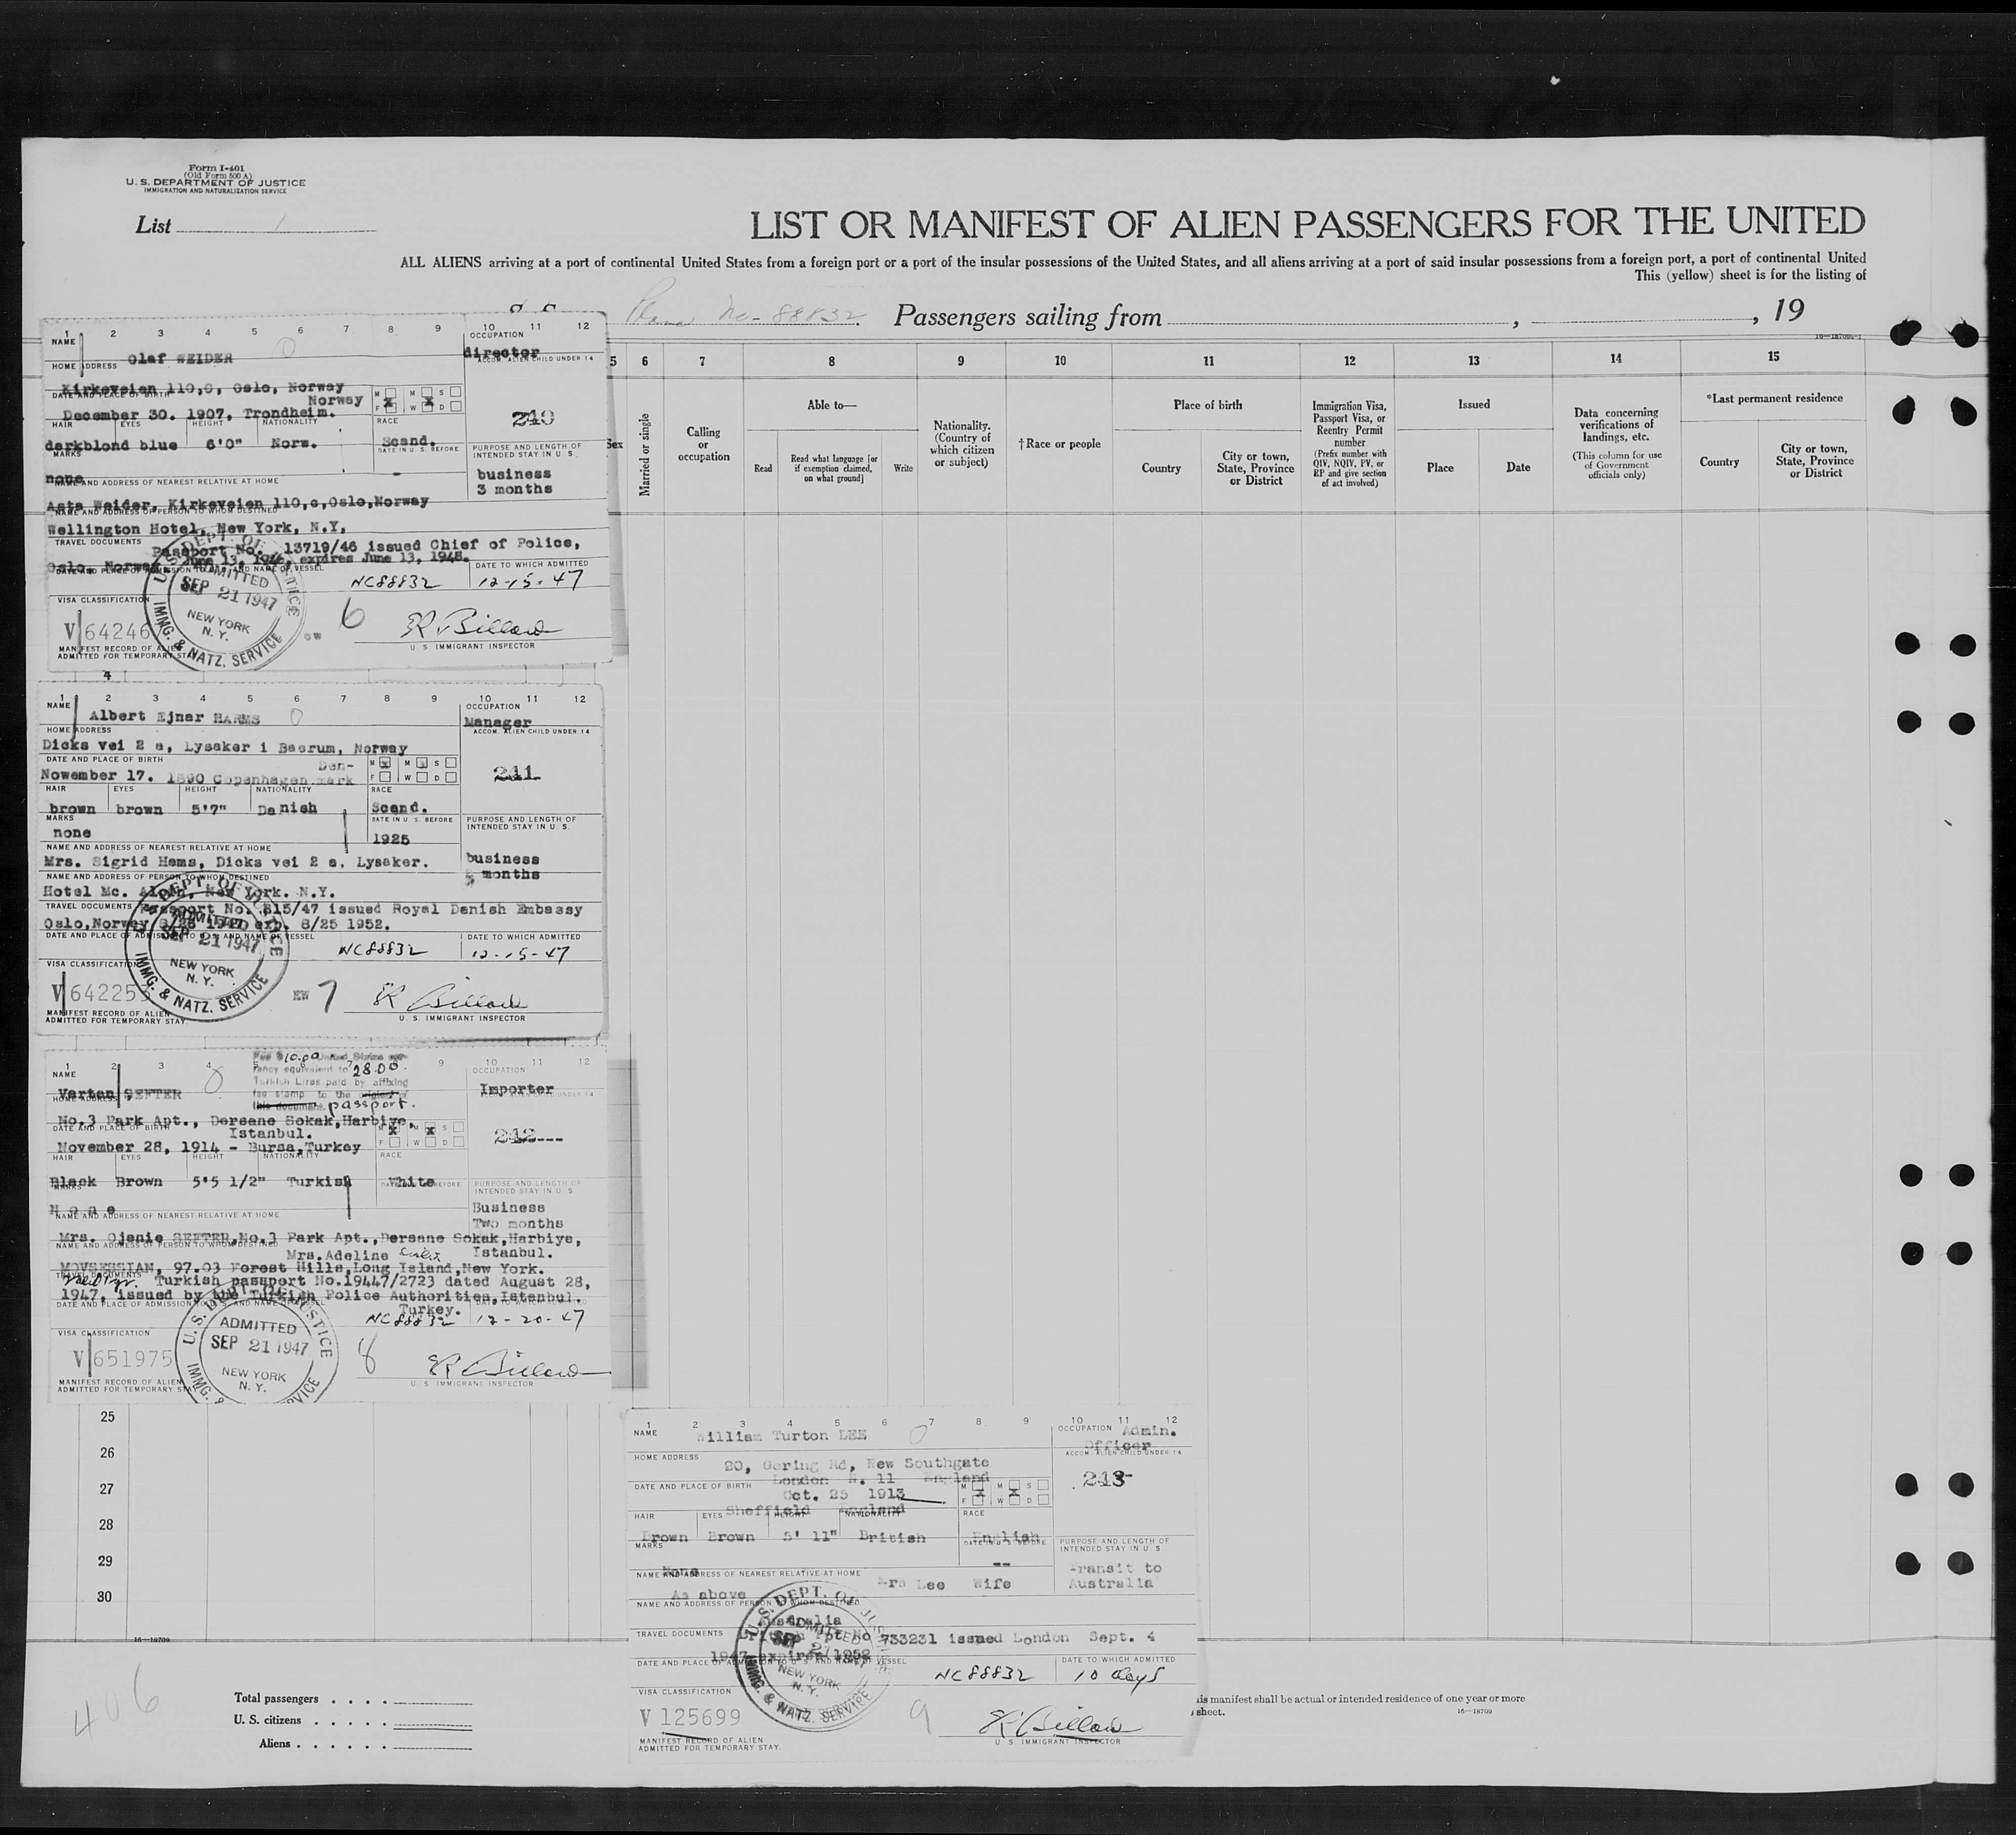 Form I-401
(Old Form 500 A)
U. S. DEPARTMENT OF JUSTICE
IMMIGRATION AND NATURALIZATION SERVICE
List 1
LIST OR MANIFEST OF ALIEN PASSENGERS FOR THE UNITED
ALL ALIENS arriving at a port of continental United States from a foreign port or a port of the insular possessions of the United States, and all aliens arriving at a port of said insular possessions from a foreign port, a port of continental United
This (yellow) sheet is for the listing of
Plane No- 88832. Passengers sailing from , , 19
5 6 7 8 9 10 11 12 13 14 15
Sex
Married or single
Calling or occupation
Able to—
Read
Read what language [or if exemption claimed, on what ground]
Write
Nationality. (Country of which citizen or subject)
†Race or people
Place of birth
Country
City or town, State, Province or District
Immigration Visa, Passport Visa, or Reentry Permit number
(Prefix number with QIV, NQIV, PV, or RP and give section of act involved)
Issued
Place
Date
Data concerning verifications of landings, etc.
(This column for use of Government officials only)
*Last permanent residence
Country
City or town, State, Province or District
1 2 3 4 5 6 7 8 9 10 11 12
NAME
OCCUPATION
Olaf WEIDER 0
director
HOME ADDRESS
ACCOM. ALIEN CHILD UNDER 14
Kirkeveien 110,c, Oslo, Norway
DATE AND PLACE OF BIRTH
Norway
December 30. 1907, Trondheim.
M F M W S D
240
HAIR EYES HEIGHT NATIONALITY RACE
darkblond blue 6'0" Norw. Scand.
MARKS
DATE IN U. S. BEFORE
PURPOSE AND LENGTH OF INTENDED STAY IN U. S.
none -
business
3 months
NAME AND ADDRESS OF NEAREST RELATIVE AT HOME
Asta Weider, Kirkeveien 110,c,Oslo,Norway
NAME AND ADDRESS OF PERSON TO WHOM DESTINED
Wellington Hotel, New York, N.Y.
TRAVEL DOCUMENTS
Passport No. 13719/46 issued Chief of Police,
Oslo, Norway June 13, 1946, expires June 13, 1948.
DATE AND PLACE OF ADMISSION TO U. S. AND NAME OF VESSEL
DATE TO WHICH ADMITTED
NC88832 12-15-47
U. S. DEPT. OF JUSTICE
ADMITTED
SEP 21 1947
NEW YORK
N. Y.
IMMG. & NATZ. SERVICE
VISA CLASSIFICATION
V 64246
OW 6
R Billow
U. S. IMMIGRANT INSPECTOR
MANIFEST RECORD OF ALIEN
ADMITTED FOR TEMPORARY STAY
4
1 2 3 4 5 6 7 8 9 10 11 12
NAME
OCCUPATION
Albert Ejnar HARMS 0
Manager
HOME ADDRESS
ACCOM. ALIEN CHILD UNDER 14
Dicks vei 2 a, Lysaker i Baerum, Norway
DATE AND PLACE OF BIRTH
Den-
Nowember 17. 1890 Copenhagen mark
M F M W S D
241
HAIR EYES HEIGHT NATIONALITY RACE
brown brown 5'7" Danish Scand.
MARKS
DATE IN U. S. BEFORE
PURPOSE AND LENGTH OF INTENDED STAY IN U. S.
none
1925
NAME AND ADDRESS OF NEAREST RELATIVE AT HOME
Mrs. Sigrid Hams, Dicks vei 2 a, Lysaker.
business
months
NAME AND ADDRESS OF PERSON TO WHOM DESTINED
Hotel Mc. Alpin, New York. N.Y.
TRAVEL DOCUMENTS
Passport No. 815/47 issued Royal Danish Embassy
Oslo,Norway 8/26 1947 exp. 8/25 1952.
DATE AND PLACE OF ADMISSION TO U. S. AND NAME OF VESSEL
DATE TO WHICH ADMITTED
NC88832 12-15-47
U. S. DEPT. OF JUSTICE
ADMITTED
SEP 21 1947
NEW YORK
N. Y.
IMMG. & NATZ. SERVICE
VISA CLASSIFICATION
V 642253
EW 7
R Billow
U. S. IMMIGRANT INSPECTOR
MANIFEST RECORD OF ALIEN
ADMITTED FOR TEMPORARY STAY.
Fee $10.00 United States cur-
rency equivalent to 28.00
Turkish Liras paid by affixing
fee stamp to the original of
this document. passport.
1 2 3 4 9 10 11 12
NAME
OCCUPATION
Vartan SEFTER 0
Importer
HOME ADDRESS
ACCOM. ALIEN CHILD UNDER 14
No.3 Park Apt., Dersane Sokak,Harbiye,
DATE AND PLACE OF BIRTH
Istanbul.
November 28, 1914 - Bursa,Turkey
M F M W S D
242---
HAIR EYES HEIGHT NATIONALITY RACE
Black Brown 5'5 1/2" Turkish White
MARKS
DATE IN U. S. BEFORE
PURPOSE AND LENGTH OF INTENDED STAY IN U. S.
None
Business
Two months
NAME AND ADDRESS OF NEAREST RELATIVE AT HOME
Mrs. Ojenie SEFTER,No.3 Park Apt.,Dersane Sokak,Harbiye,
NAME AND ADDRESS OF PERSON TO WHOM DESTINED
Mrs.Adeline Istanbul.
MOVSESSIAN, 97.03 Forest Hills,Long Island,New York.
TRAVEL DOCUMENTS
Valid 1 yr. Turkish passport No.19447/2723 dated August 28,
1947, issued by the Turkish Police Authorities,Istanbul.
DATE AND PLACE OF ADMISSION TO U. S. AND NAME OF VESSEL
Turkey.
NC88832 12-20-47
U. S. DEPT. OF JUSTICE
ADMITTED
SEP 21 1947
NEW YORK
N. Y.
IMMG. & SERVICE
VISA CLASSIFICATION
V 651975
8
R Billow
U. S. IMMIGRANT INSPECTOR
MANIFEST RECORD OF ALIEN
ADMITTED FOR TEMPORARY STAY
25
26
27
28
29
30
1 2 3 4 5 6 7 8 9 10 11 12
NAME
OCCUPATION
William Turton LEE 0
Admin.
Officer
HOME ADDRESS
ACCOM. ALIEN CHILD UNDER 14
20, Goring Rd, New Southgate
London N. 11 England
DATE AND PLACE OF BIRTH
Oct. 25 1913
Sheffield England
M F M W S D
243
HAIR EYES HEIGHT NATIONALITY RACE
Brown Brown 5' 11" British English
MARKS
DATE IN U. S. BEFORE
PURPOSE AND LENGTH OF INTENDED STAY IN U. S.
None --
Transit to
Australia
NAME AND ADDRESS OF NEAREST RELATIVE AT HOME
Mrs Lee Wife
As above
NAME AND ADDRESS OF PERSON TO WHOM DESTINED
Australia
TRAVEL DOCUMENTS
British Ppt No 733231 issued London Sept. 4
1947 expires 1952
DATE AND PLACE OF ADMISSION TO U. S. AND NAME OF VESSEL
DATE TO WHICH ADMITTED
NC88832 10 days
U. S. DEPT. OF JUSTICE
ADMITTED
SEP 21
NEW YORK
N. Y.
IMMG. & NATZ. SERVICE
VISA CLASSIFICATION
V 125699
9
R Billow
U. S. IMMIGRANT INSPECTOR
MANIFEST RECORD OF ALIEN
ADMITTED FOR TEMPORARY STAY.
16—18709
406
Total passengers
U. S. citizens
Aliens
is manifest shall be actual or intended residence of one year or more
sheet.
16—18709